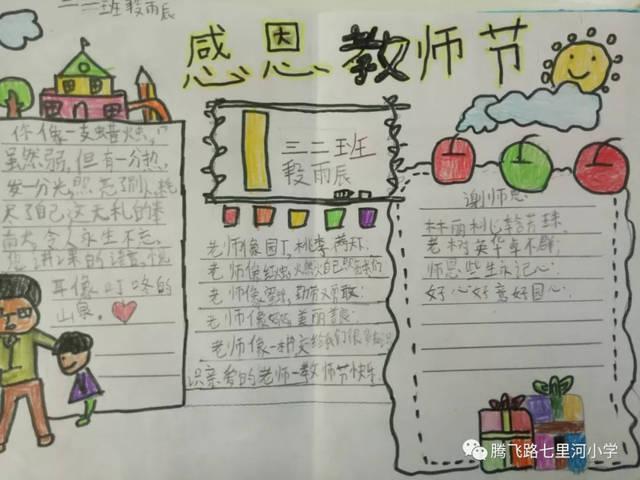 三二班段雨辰
感恩教师节
你像一支蜡烛,
虽然弱,但有一分热,
发一分光照亮了别人,耗
尽了自己这无私的奉
献令人永生不忘。
您讲课的语言,悦
耳像叮咚的
山泉。
三二班
段雨辰
老师像园丁,桃李满天下
老师像蜡烛,燃烧自己照亮我们
老师像蜜蜂,勤劳又勇敢
老师像妈妈,美丽善良
老师像一本书,交给我们很多知识
识亲爱的老师一教师节快乐
谢师恩
林丽桃
老树英华卓不群
师恩些生永记心
好心好意好园心
腾飞路七里河小学